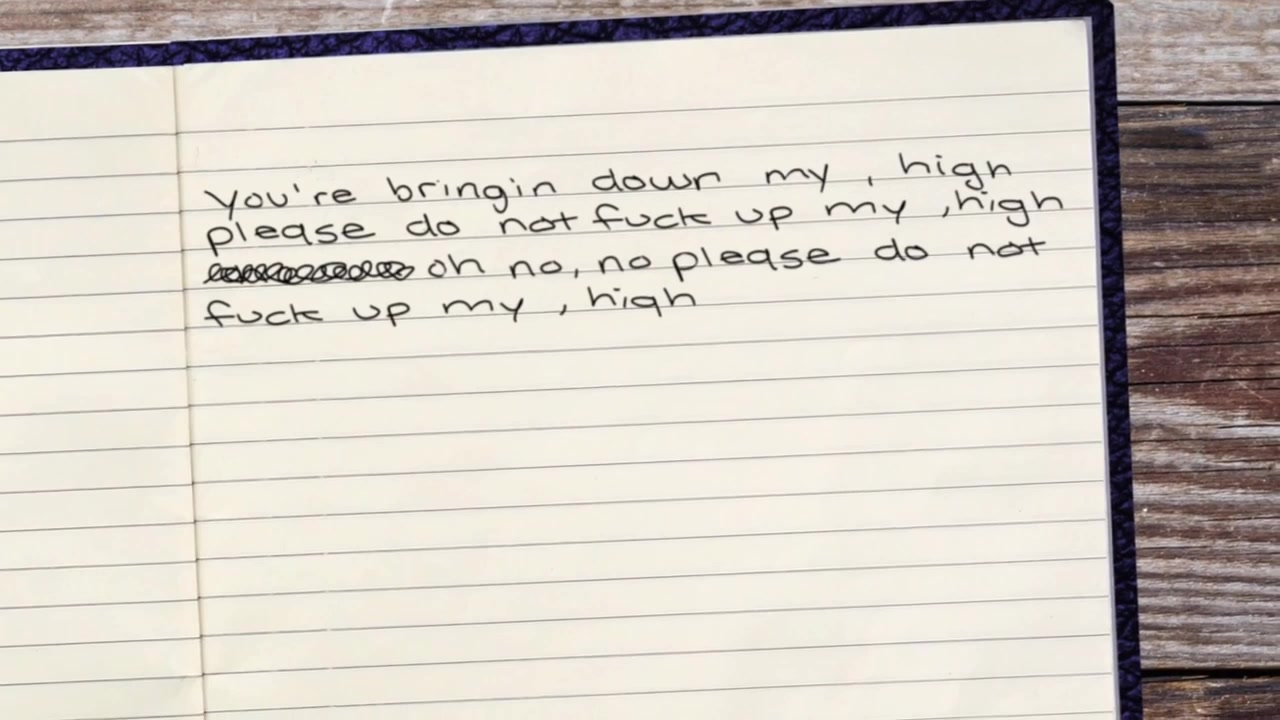 You're bringin down my , high
please do not fuck up my ,high
oh no, no please do not
fuck up my , high